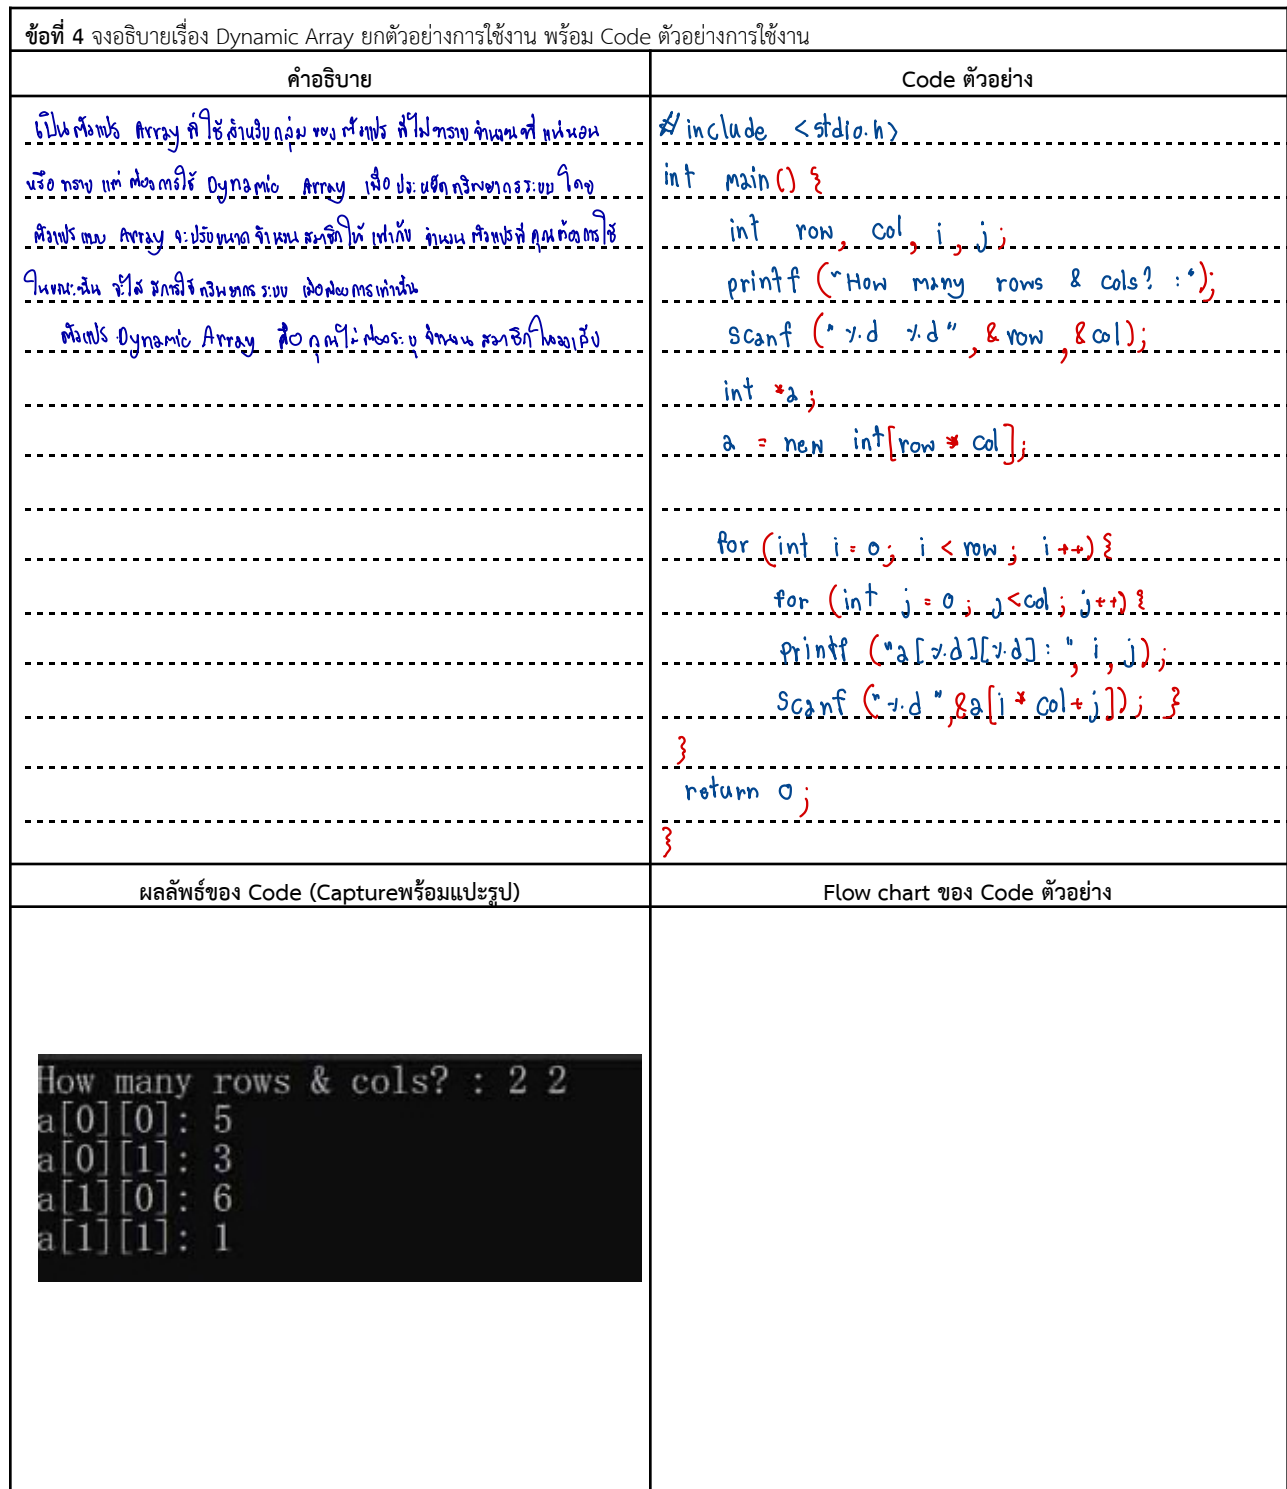 ข้อที่ 4 จงอธิบายเรื่อง Dynamic Array ยกตัวอย่างการใช้งาน พร้อม Code ตัวอย่างการใช้งาน
คำอธิบาย
เป็นตัวแปร Array ที่ใช้สำหรับกลุ่มของตัวแปร ที่ไม่ทราบจำนวนที่แน่นอน
หรือทราบ แต่ต้องการใช้ Dynamic Array เพื่อประหยัดทรัพยากรระบบ โดย
ตัวแปรแบบ Array จะปรับขนาดจำนวนสมาชิกให้เท่ากับ จำนวนตัวแปรที่คุณต้องการใช้
ในขณะนั้น จะได้มีการใช้ทรัพยากรระบบ เมื่อต้องการเท่านั้น
ตัวแปร Dynamic Array คือ คุณไม่ต้องระบุ จำนวนสมาชิกในวงเล็บ
Code ตัวอย่าง
#include <stdio.h>
int main() {
int row, col, i, j;
printf ("How many rows & cols? :");
scanf ("%d %d", &row, &col);
int *a;
a = new int[row * col];
for (int i = 0; i < row; i++) {
for (int j = 0; j<col; j++) {
printf ("a[%d][%d]: ", i, j);
scanf ("%d", &a[i * col+j]); }
}
return 0;
}
ผลลัพธ์ของ Code (Captureพร้อมแปะรูป)
How many rows & cols? : 2 2
a[0][0]: 5
a[0][1]: 3
a[1][0]: 6
a[1][1]: 1
Flow chart ของ Code ตัวอย่าง